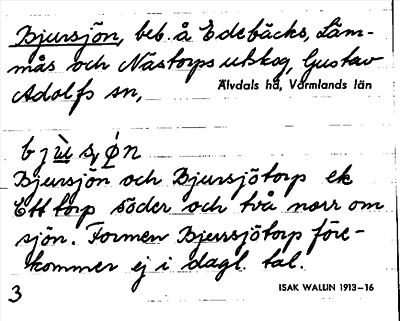 Bjursjön, beb. å Edebäcks, Läm-
mås och Nästorps utskog, Gustav
Adolfs sn, Älvdals hd, Värmlands län
Bjursjön och Bjursjötorp ek
Ett torp söder och två norr om
sjön. Formen Bjursjötorp före-
kommer ej i dagl. tal.
3 ISAK WALLIN 1913-16